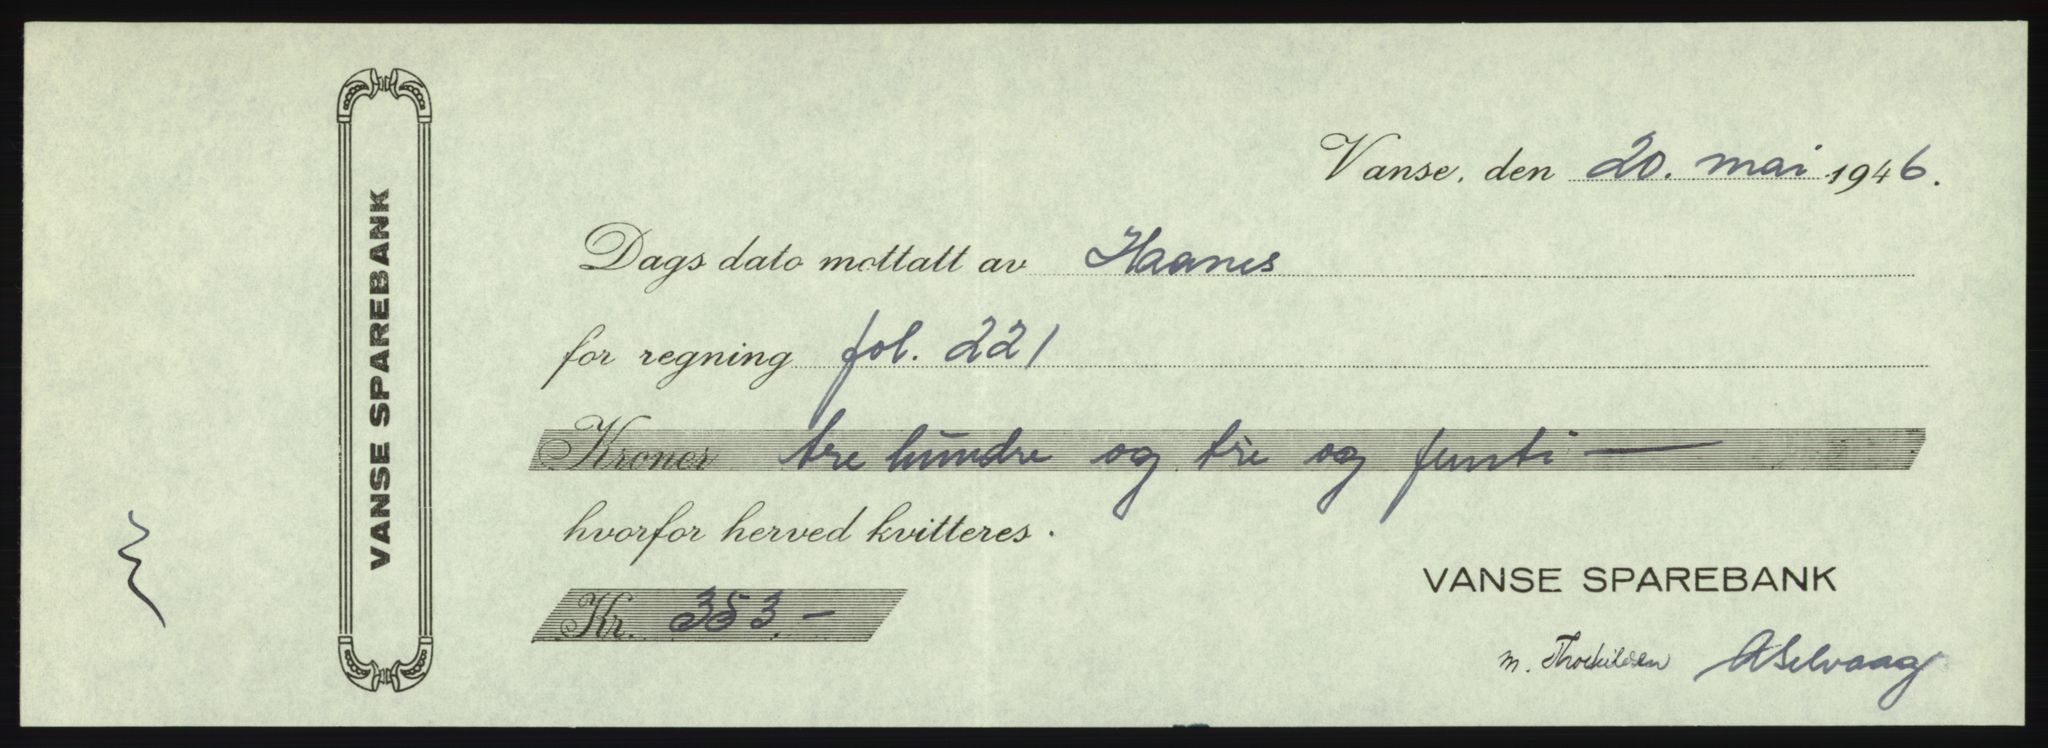 VANSE SPAREBANK
Vanse, den 20. mai 1946.
Dags dato mottatt av Haanes
for regning fol. 221
Kroner tre hundre og tre og femti —
hvorfor herved kvitteres.
Kr. 353.-
VANSE SPAREBANK
M. Thorkildsen ASelvaag